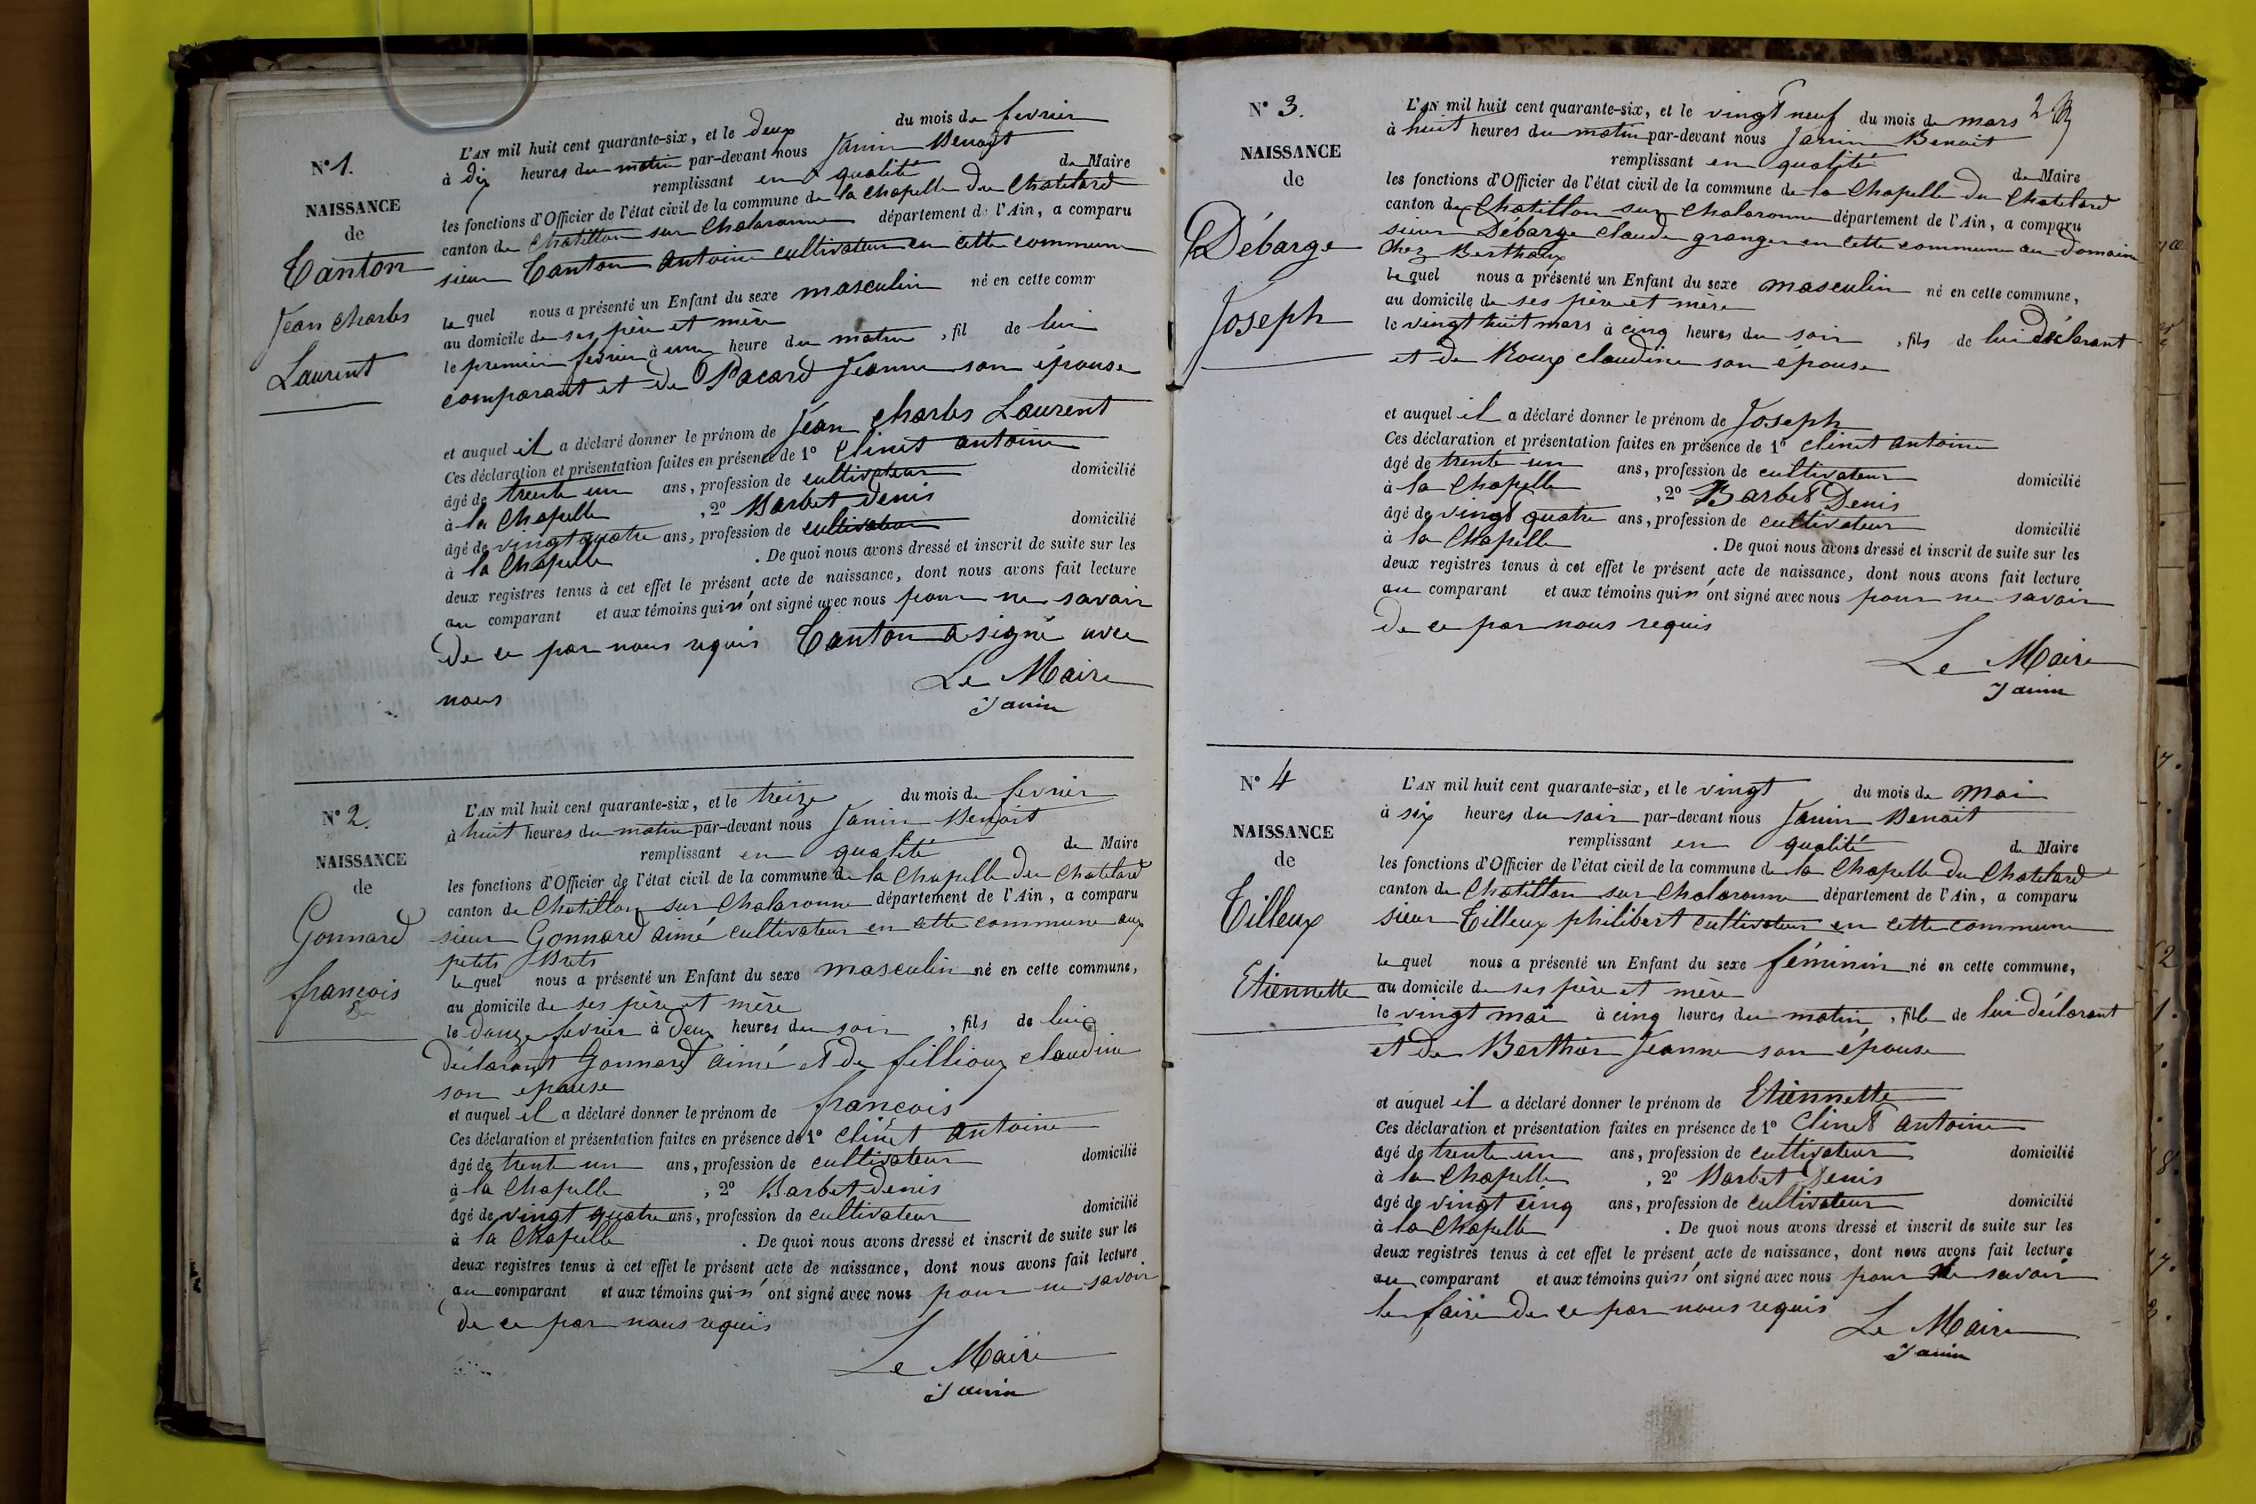 N° 1.
NAISSANCE
de
Canton
Jean Charles
Laurent
L'AN mil huit cent quarante-six, et le deux du mois de fevrier
à dix heures du matin par-devant nous Janin Benoit
remplissant en qualité de Maire
les fonctions d'Officier de l'état civil de la commune de la Chapelle du Chatelard
canton de Chatillon sur Chalaronne département de l'Ain, a comparu
sieur Canton Antoine cultivateur en cette commune
lequel nous a présenté un Enfant du sexe masculin né en cette comm
au domicile de ses père et mère
le premier fevrier à une heure du matin, fil de lui
comparant et de Pacard Jeanne son épouse
et auquel il a déclaré donner le prénom de Jean Charles Laurent
Ces déclaration et présentation faites en présence de 1° Clinet antoine
âgé de trente un ans, profession de cultivateur domicilié
à la Chapelle, 2° Barbet Denis
âgé de vingt quatre ans, profession de cultivateur domicilié
à la Chapelle. De quoi nous avons dressé et inscrit de suite sur les
deux registres tenus à cet effet le présent acte de naissance, dont nous avons fait lecture
au comparant et aux témoins qui n'ont signé avec nous pour ne savoir
de ce par nous requis Canton a signé avec
nous
Le Maire
Janin
N° 2.
NAISSANCE
de
Gonnard
françois
L'AN mil huit cent quarante-six, et le treize du mois de fevrier
à huit heures du matin par-devant nous Janin Benoit
remplissant en qualité de Maire
les fonctions d'Officier de l'état civil de la commune de la Chapelle du Chatelard
canton de Chatillon sur Chalaronne département de l'Ain, a comparu
sieur Gonnard aimé cultivateur en cette commune aux
petits Brets
lequel nous a présenté un Enfant du sexe masculin né en cette commune,
au domicile de ses père et mère
le douze fevrier à deux heures du soir, fils de lui
déclarant Gonnard aimé et de fillioux claudine
son épouse
et auquel il a déclaré donner le prénom de françois
Ces déclaration et présentation faites en présence de 1° Clinet antoine
âgé de trente un ans, profession de cultivateur domicilié
à la Chapelle, 2° Barbet Denis
âgé de vingt quatre ans, profession de cultivateur domicilié
à la Chapelle. De quoi nous avons dressé et inscrit de suite sur les
deux registres tenus à cet effet le présent acte de naissance, dont nous avons fait lecture
au comparant et aux témoins qui n'ont signé avec nous pour ne savoir
de ce par nous requis
Le Maire
Janin
2
N° 3.
NAISSANCE
de
Débarge
Joseph
L'AN mil huit cent quarante-six, et le vingt neuf du mois de mars
à huit heures du matin par-devant nous Janin Benoit
remplissant en qualité de Maire
les fonctions d'Officier de l'état civil de la commune de la Chapelle du Chatelard
canton de Chatillon sur Chalaronne département de l'Ain, a comparu
sieur Débarge claude granger en cette commune au domaine
chez Berthoux
lequel nous a présenté un Enfant du sexe masculin né en cette commune,
au domicile de ses père et mère
le vingt huit mars à cinq heures du soir, fils de lui déclarant
et de Roux claudine son épouse
et auquel il a déclaré donner le prénom de Joseph
Ces déclaration et présentation faites en présence de 1° Clinet antoine
âgé de trente un ans, profession de cultivateur domicilié
à la Chapelle, 2° Barbet Denis
âgé de vingt quatre ans, profession de cultivateur domicilié
à la Chapelle. De quoi nous avons dressé et inscrit de suite sur les
deux registres tenus à cet effet le présent acte de naissance, dont nous avons fait lecture
au comparant et aux témoins qui n'ont signé avec nous pour ne savoir
de ce par nous requis
Le Maire
Janin
N° 4
NAISSANCE
de
Tilleux
Etiennette
L'AN mil huit cent quarante-six, et le vingt du mois de mai
à six heures du soir par-devant nous Janin Benoit
remplissant en qualité de Maire
les fonctions d'Officier de l'état civil de la commune de la Chapelle du Chatelard
canton de Chatillon sur Chalaronne département de l'Ain, a comparu
sieur Tilleux philibert cultivateur en cette commune
lequel nous a présenté un Enfant du sexe féminin né en cette commune,
au domicile de ses père et mère
le vingt mai à cinq heures du matin, fille de lui déclarant
et de Berthier Jeanne son épouse
et auquel il a déclaré donner le prénom de Etiennette
Ces déclaration et présentation faites en présence de 1° Clinet antoine
âgé de trente un ans, profession de cultivateur domicilié
à la Chapelle, 2° Barbet Denis
âgé de vingt cinq ans, profession de cultivateur domicilié
à la Chapelle. De quoi nous avons dressé et inscrit de suite sur les
deux registres tenus à cet effet le présent acte de naissance, dont nous avons fait lecture
au comparant et aux témoins qui n'ont signé avec nous pour ne savoir
le faire de ce par nous requis
Le Maire
Janin